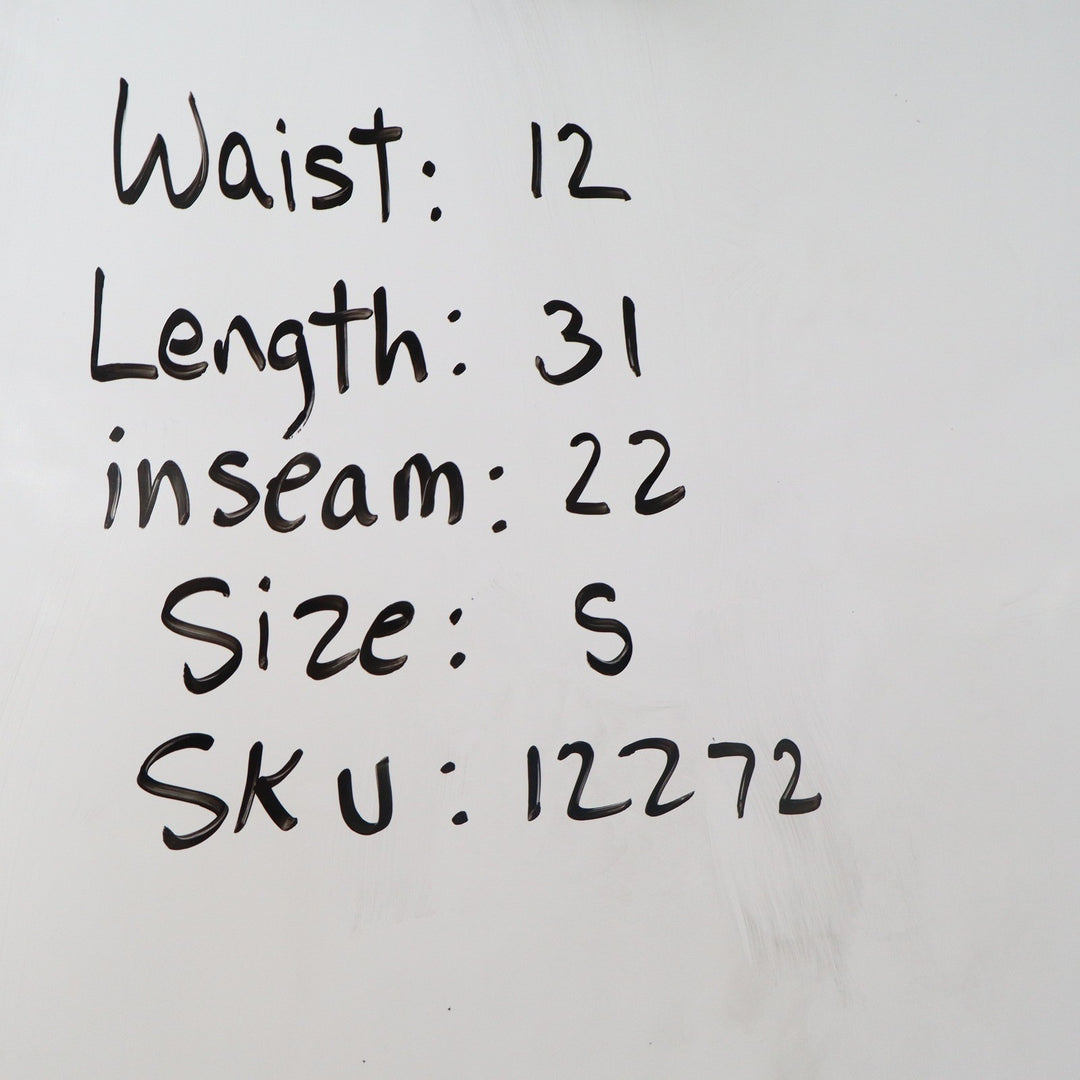 Waist: 12
Length: 31
inseam: 22
Size: S
SKU: 12272